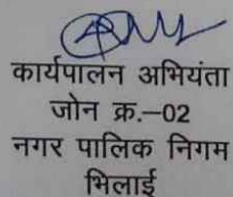 कार्यपालन अभियंता
जोन क्र.–02
नगर पालिक निगम
भिलाई